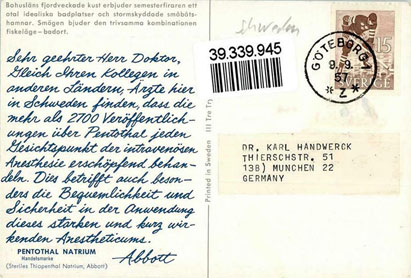 Bohusläns fjordveckade kust erbjuder semesterfiraren ett
otal idealiska badplatser och stormskyddade småbåts-
hamnar. Smögen bjuder den trivsamma kombinationen
fiskeläge - badort.
Schweden
39.339.945
GÖTEBORG 1
9.-9.
57
* Z *
15
SVERIGE
Sehr geehrter Herr Doktor,
Gleich Ihren Kollegen in
anderen Ländern, Ärzte hier
in Schweden finden, dass die
mehr als 2700 Veröffentlich-
ungen über Pentothal jeden
Gesichtspunkt der intravenösen
Anesthesie erschöpfend behan-
deln. Dies betrifft auch beson-
ders die Bequemlichkeit und
Sicherheit in der Anwendung
dieses starken und kurz wir-
kenden Anestheticums.
PENTOTHAL NATRIUM
Handelsmarke
(Steriles Thiopenthal Natrium, Abbott)
Abbott
Printed in Sweden
DR. KARL HANDWERCK
THIERSCHSTR. 51
13B) MUNCHEN 22
GERMANY